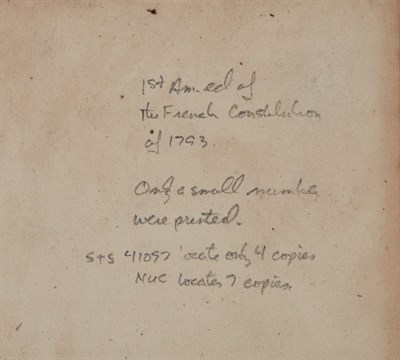 1st Am. ed of
the French Constitution
of 1793.
Only a small number
were printed.
S+S 41097 locate only 4 copies
NUC locates 7 copies